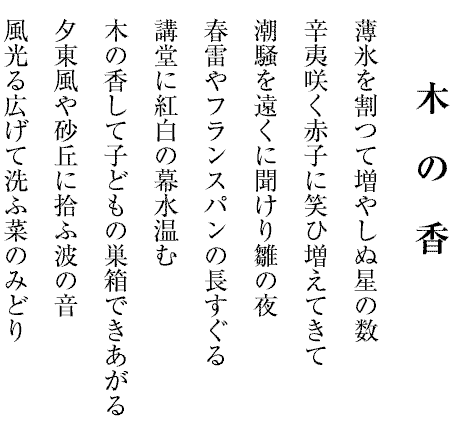 木の香
薄氷を割つて増やしぬ星の数
辛夷咲く赤子に笑ひ増えてきて
潮騒を遠くに聞けり雛の夜
春雷やフランスパンの長すぐる
講堂に紅白の幕水温む
木の香して子どもの巣箱できあがる
夕東風や砂丘に拾ふ波の音
風光る広げて洗ふ菜のみどり